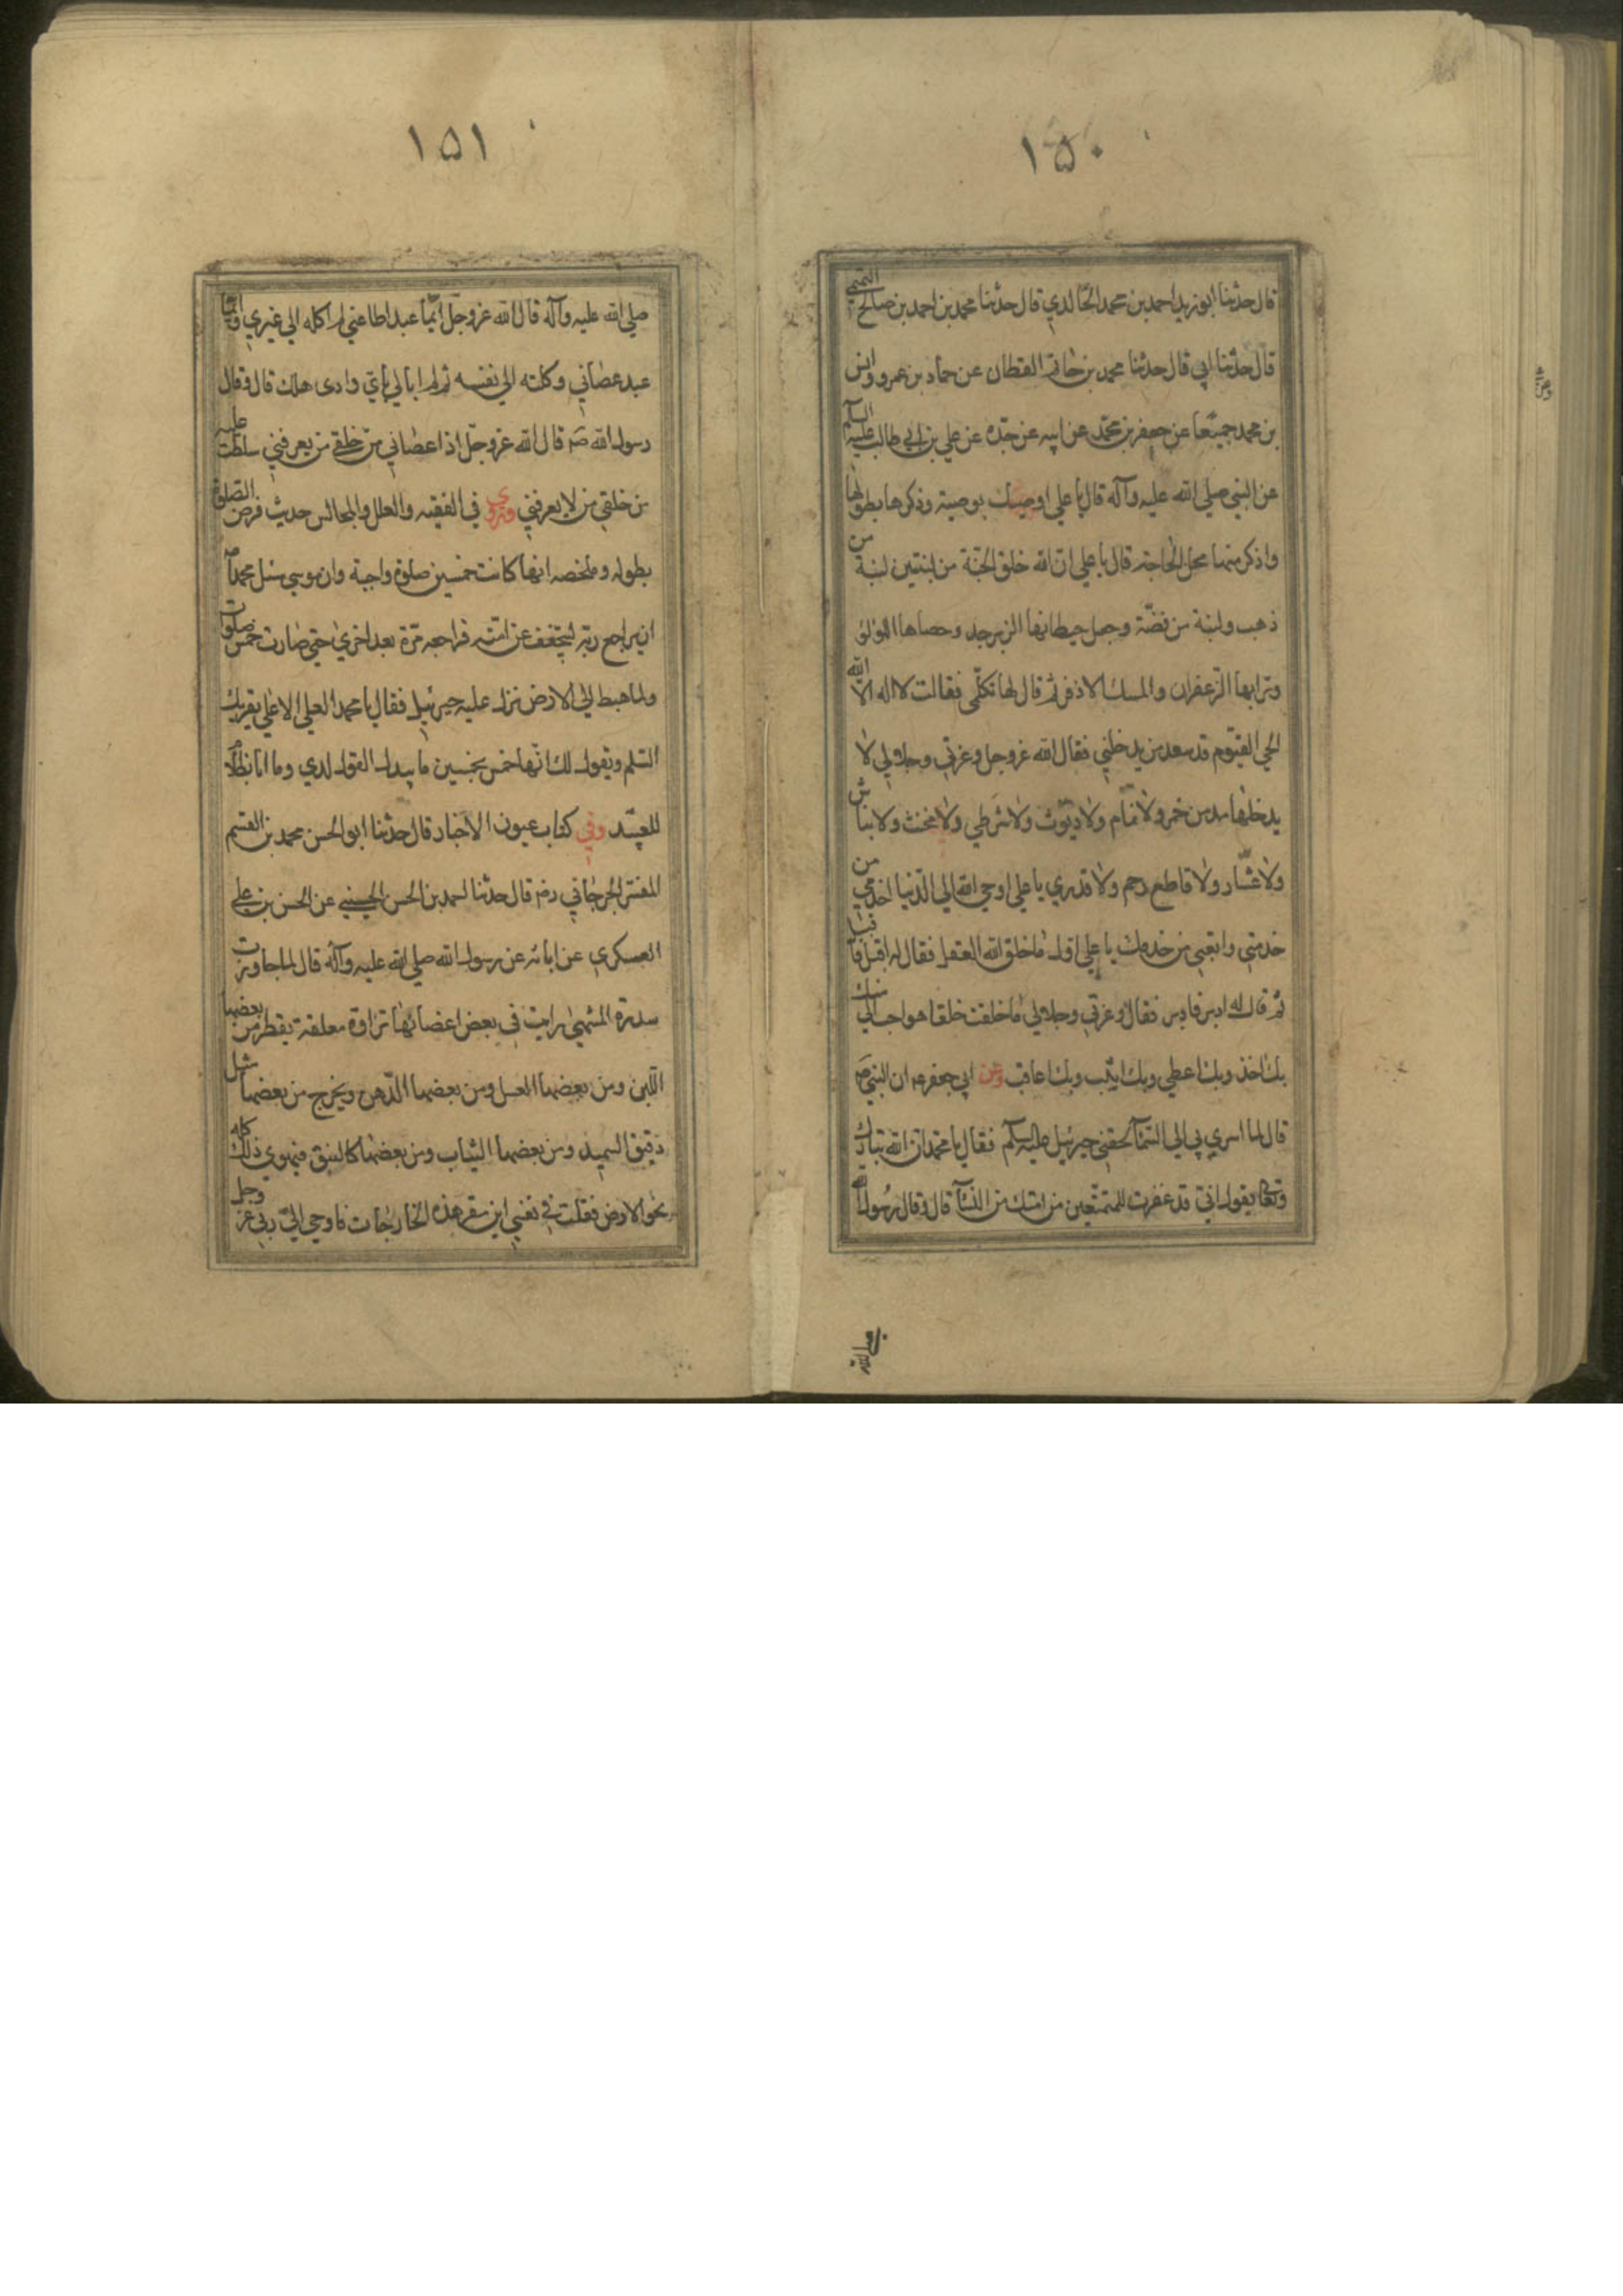 ١٥٠
قال حدثنا ابو زيد احمد بن محمد الخالدي قال حدثنا محمد بن احمد بن صالح التميمي
قال حدثنا ابي قال حدثنا محمد بن حاتم القطان عن حماد بن عمرو وانس
بن محمد جميعا عن جعفر بن محمد عن ابيه عن جده عن علي بن ابي طالب عليه السلم
عن النبي صلي الله عليه وآله قال يا علي اوصيك بوصية وذكرها بطولها
واذكر منها محل الحاجة قال يا علي ان الله خلق الجنة من لبنتين لبنة من
ذهب ولبنة من فضة وجعل حيطانها الزبرجد وحصاها اللؤلؤ
وترابها الزعفران والمسك الاذفر ثم قال لها تكلمي فقالت لا اله الا الله
الحي القيوم قد سعد من يدخلني فقال الله عز وجل وعزتي وجلالي لا
يدخلها مدمن خمر ولا نمام ولا ديوث ولا شرطي ولا مخنث ولا نباش
ولا عشار ولا قاطع رحم ولا قدري يا علي اوحي الله الي الدنيا اخدمي من
خدمني واتعبي من خدمك يا علي اول ما خلق الله العقل فقال له اقبل فاقبل
ثم قال له ادبر فادبر فقال وعزتي وجلالي ما خلقت خلقا هو احب الي منك
بك اخذ وبك اعطي وبك اثيب وبك اعاقب وعن ابي جعفر ع ان النبي ص
قال لما اسري بي الي السمآ لحقني جبرئيل عليه السلم فقال يا محمد ان الله تبارك
وتعالي يقول اني قد غفرت للمتمتعين من امتك من النسآ قال وقال رسول الله
صلي الله
١٥١
صلي الله عليه وآله قال الله عز وجل ايما عبد اطاعني لم اكله الي غيري وايما
عبد عصاني وكلته الي نفسه ثم لم ابالي باي وادي هلك قال وقال
رسول الله ص قال الله عز وجل اذا عصاني من خلقي من يعرفني سلطت عليه
من خلقي من لا يعرفني وروي في الفقيه والعلل والمجالس حديث فرض الصلوة
بطوله وملخصه انها كانت خمسين صلوة واجبة وان موسي سئل محمدا ص
ان يراجع ربه ليخفف عن امته فراجعه مرة بعد اخري حتي صارت خمس صلوات
ولما هبط الي الارض نزل عليه جبرئيل فقال يا محمد العلي الاعلي يقرئك
السلم ويقول لك انها خمس بخمسين ما يبدل القول لدي وما انا بظلام
للعبيد وفي كتاب عيون الاخبار قال حدثنا ابو الحسن محمد بن القسم
المفسر الجرجاني رض قال حدثنا احمد بن الحسن الحسيني عن الحسن بن علي
العسكري عن ابائه عن رسول الله صلي الله عليه وآله قال لما جاوزت
سدرة المنتهي رايت في بعض اغصانها ثراوة معلقة يقطر من بعضها
اللبن ومن بعضها العسل ومن بعضها الدهن ويخرج من بعضها مثل
دقيق السميد ومن بعضها الثياب ومن بعضها كالنبق فيهوي ذلك كله
نحو الارض فقلت في نفسي اين مقر هذه الخارجات فاوحي الي ربي عز وجل